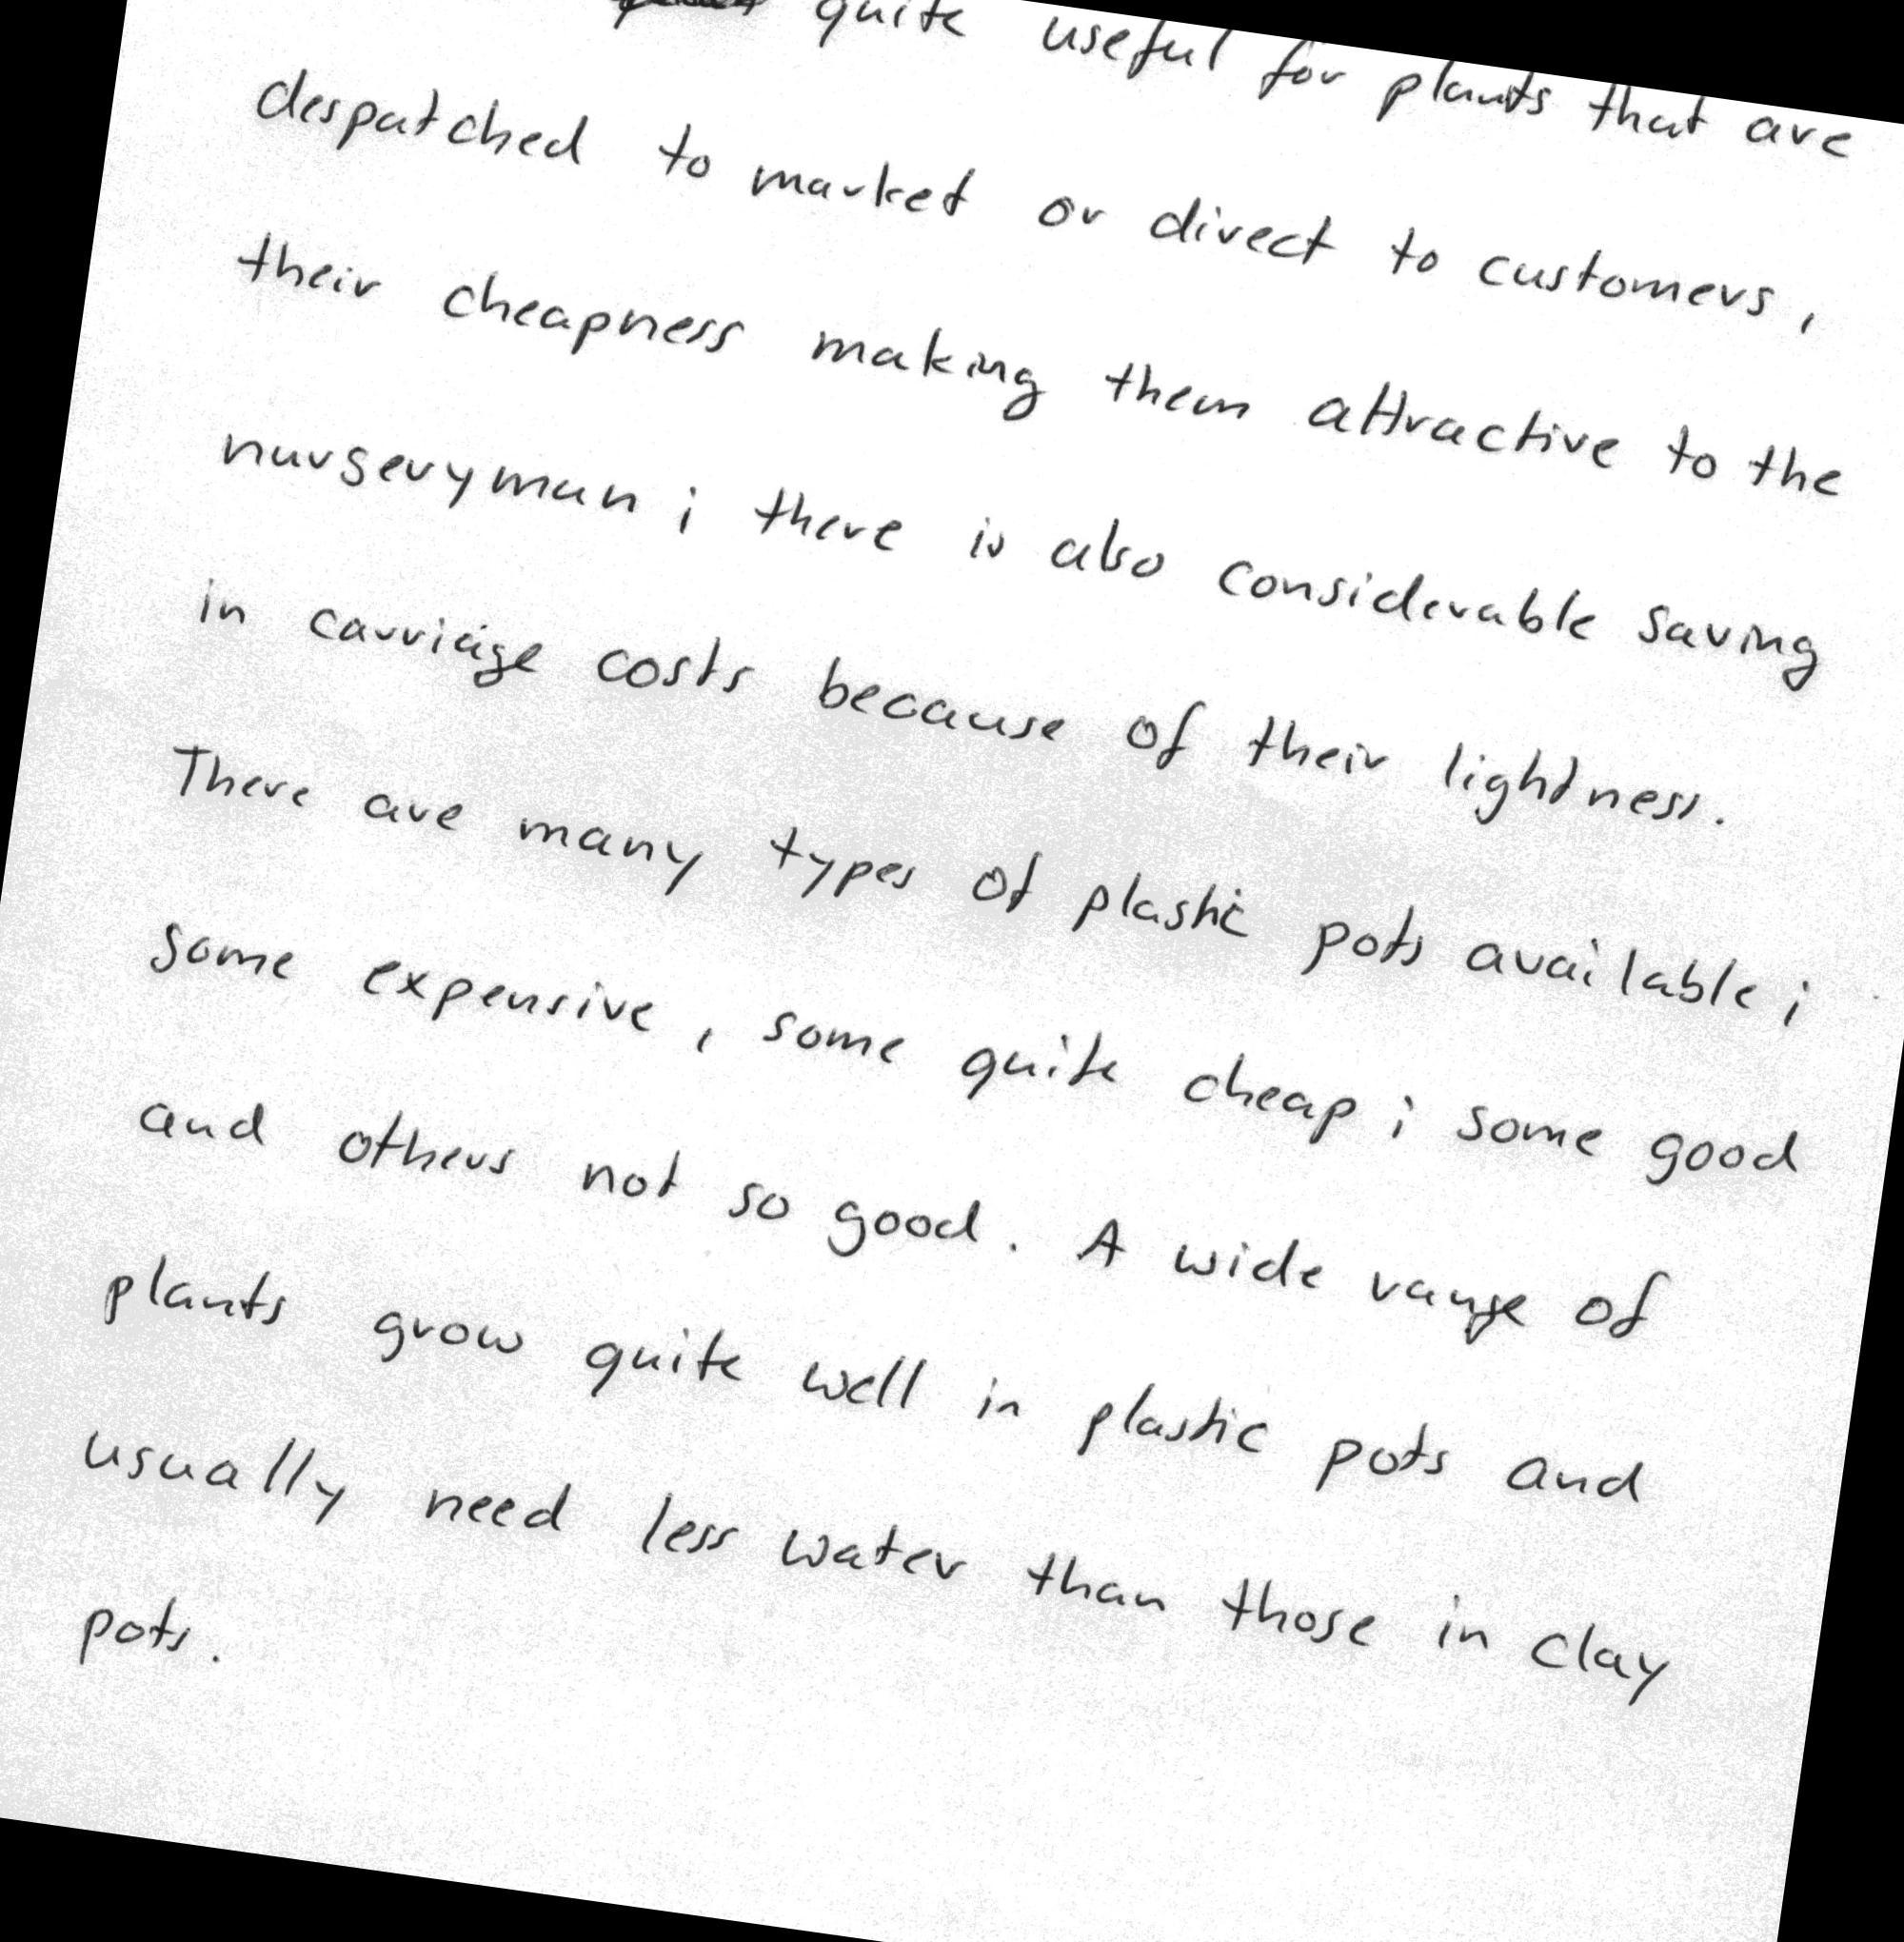 quite useful for plants that are
despatched to market or direct to customers,
their cheapness making them attractive to the
nurseryman; there is also considerable saving
in carriage costs because of their lightness.
There are many types of plastic pots available;
some expensive, some quite cheap; some good
and others not so good. A wide range of
plants grow quite well in plastic pots and
usually need less water than those in clay
pots.